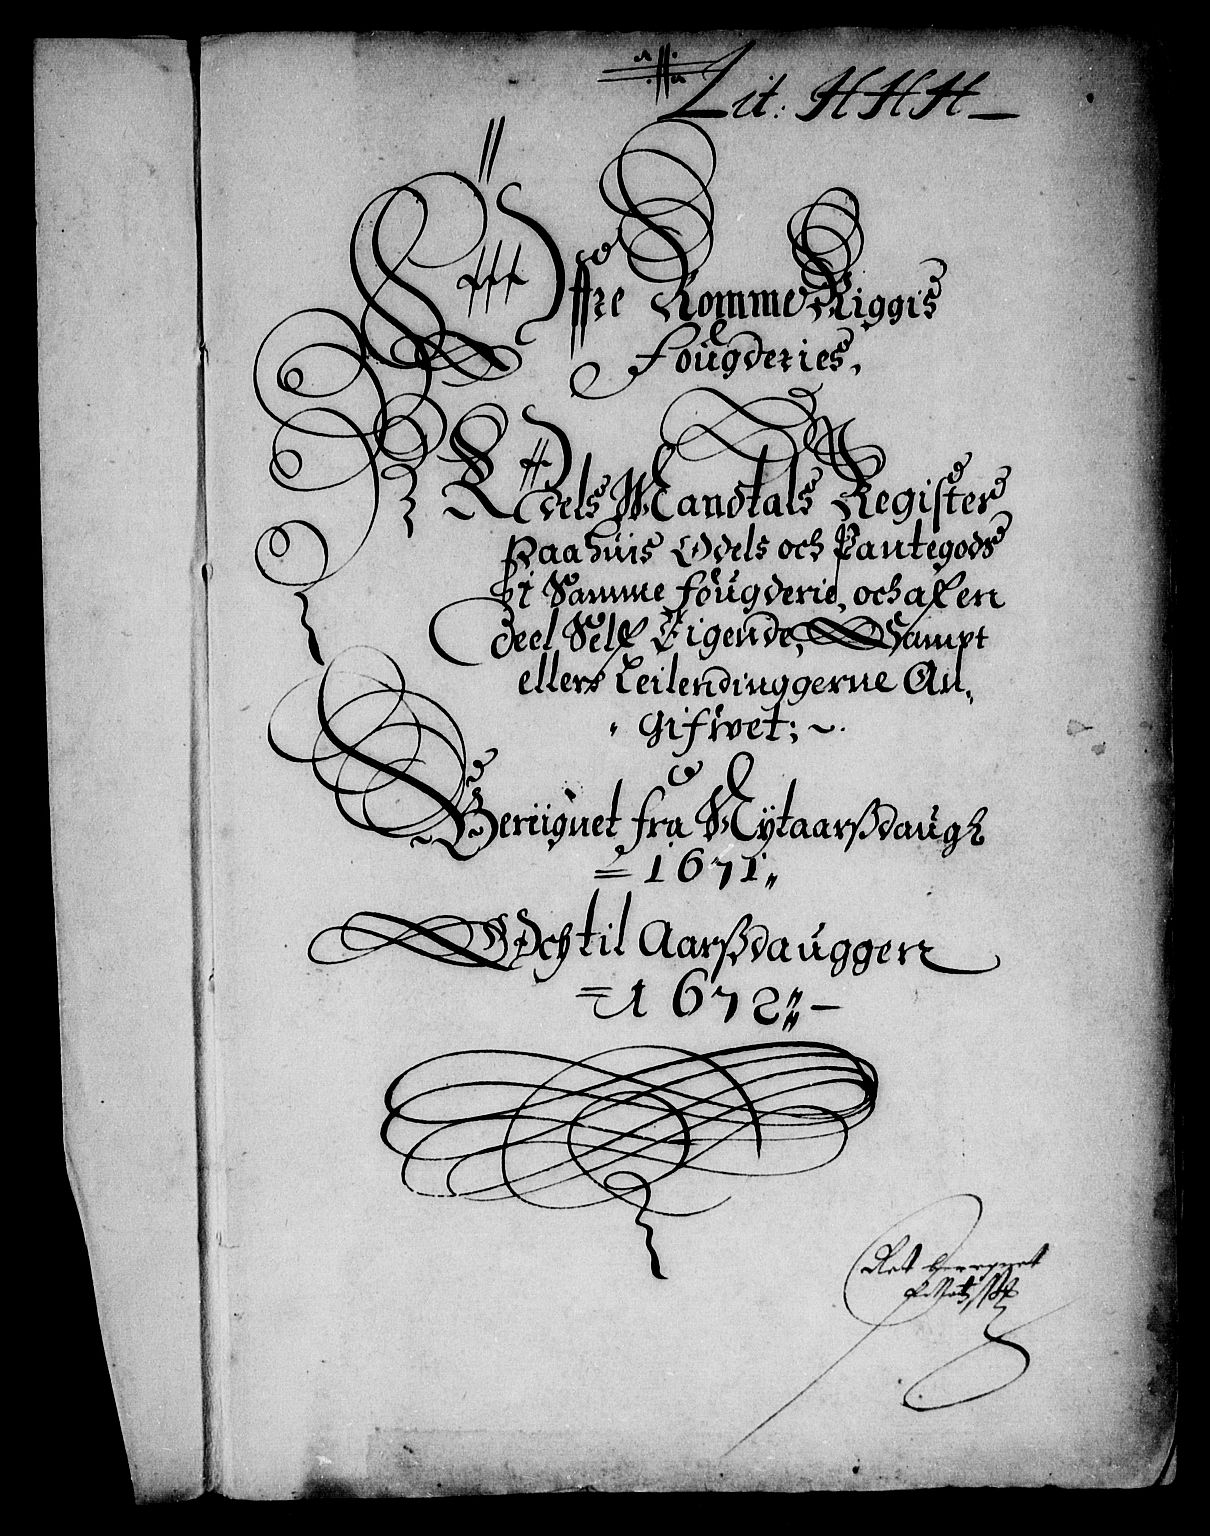 Lit: HHH
Øffre Rommeriggis
fougderies.
Odels Mandtals Register
Paa huis Odels och Pantegods
i Samme fougderie, och af en
deel Self Eigende, Sampt
ellers Leilendinggerne An,
Gifwet;
Bereignet fra Nytaarsßdaugh
1671
Och til Aarsßdauggen
1672
Ret beregnet